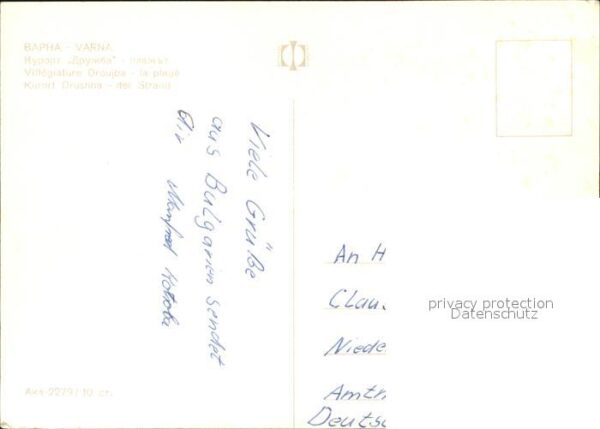 ВАРНА - VARNA
Курорт „Дружба" - плажът
Villégiature Droujba - la plage
Kurort Drushba - der Strand
Viele Grüße
aus Bulgarien sendet
dir Manfred
An H
Clau
Niede
Amtn
Deutsc
privacy protection
Datenschutz
Акл-2279/10 ст.